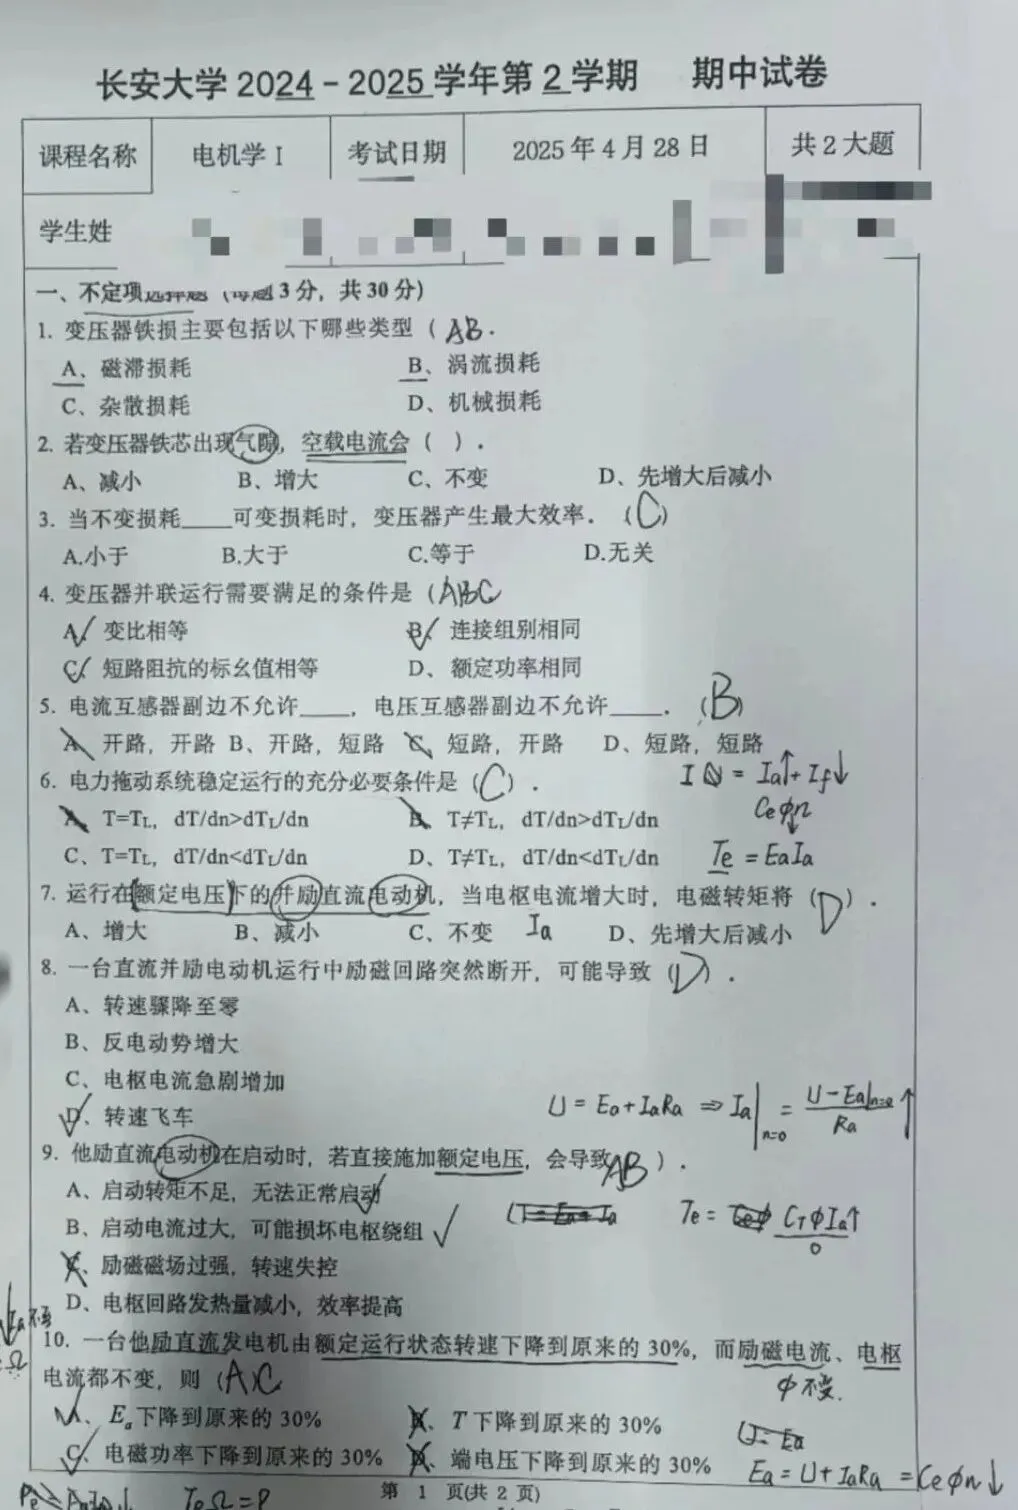 长安大学 2024－2025 学年第 2 学期 期中试卷
课程名称 电机学 I 考试日期 2025 年 4 月 28 日 共 2 大题
学生姓
一、不定项选择题（每题 3 分，共 30 分）
1. 变压器铁损主要包括以下哪些类型（ AB .
A、磁滞损耗 B、涡流损耗
C、杂散损耗 D、机械损耗
2. 若变压器铁芯出现气隙，空载电流会（ ）.
A、减小 B、增大 C、不变 D、先增大后减小
3. 当不变损耗____可变损耗时，变压器产生最大效率.（C）
A.小于 B.大于 C.等于 D.无关
4. 变压器并联运行需要满足的条件是（ABC
A、变比相等 B、连接组别相同
C、短路阻抗的标幺值相等 D、额定功率相同
5. 电流互感器副边不允许____，电压互感器副边不允许____.（B）
A、开路，开路 B、开路，短路 C、短路，开路 D、短路，短路
6. 电力拖动系统稳定运行的充分必要条件是（C）.
I N = Ia↑+ If↓
CeΦn
A、T=TL，dT/dn>dTL/dn B、T≠TL，dT/dn>dTL/dn
C、T=TL，dT/dn<dTL/dn D、T≠TL，dT/dn<dTL/dn
Te = EaIa
7. 运行在额定电压下的并励直流电动机，当电枢电流增大时，电磁转矩将（D）.
A、增大 B、减小 C、不变 Ia D、先增大后减小
8. 一台直流并励电动机运行中励磁回路突然断开，可能导致（D）.
A、转速骤降至零
B、反电动势增大
C、电枢电流急剧增加
D、转速飞车
U = Ea+IaRa ⇒ Ia|n=0 = U-Ea|n=0 / Ra ↑
9. 他励直流电动机在启动时，若直接施加额定电压，会导致AB ）.
A、启动转矩不足，无法正常启动
B、启动电流过大，可能损坏电枢绕组
Te = CTΦIa↑
0
C、励磁磁场过强，转速失控
D、电枢回路发热量减小，效率提高
10. 一台他励直流发电机由额定运行状态转速下降到原来的 30%，而励磁电流、电枢
电流都不变，则（A)C
Φ不变.
A、Ea下降到原来的 30% B、T 下降到原来的 30%
C、电磁功率下降到原来的 30% D、端电压下降到原来的 30%
U= Ea
Ea = U+IaRa = CeΦn↓
TeΩ=P
第 1 页(共 2 页)